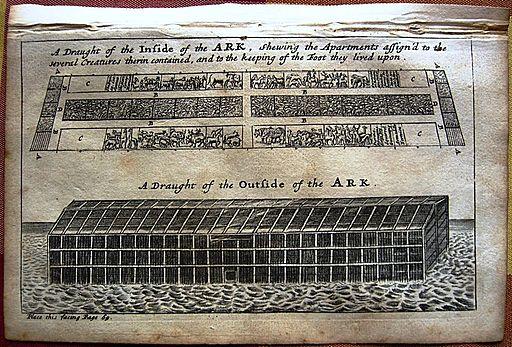 A Draught of the Inſide of the ARK, ſhewing the Apartments aſſign'd to the
ſeveral Creatures therin contained, and to the keeping of the Foot they lived upon
A
A
C
C
B
D
B
D
B
C
C
A
A
A Draught of the Outſide of the ARK.
Place this facing Page